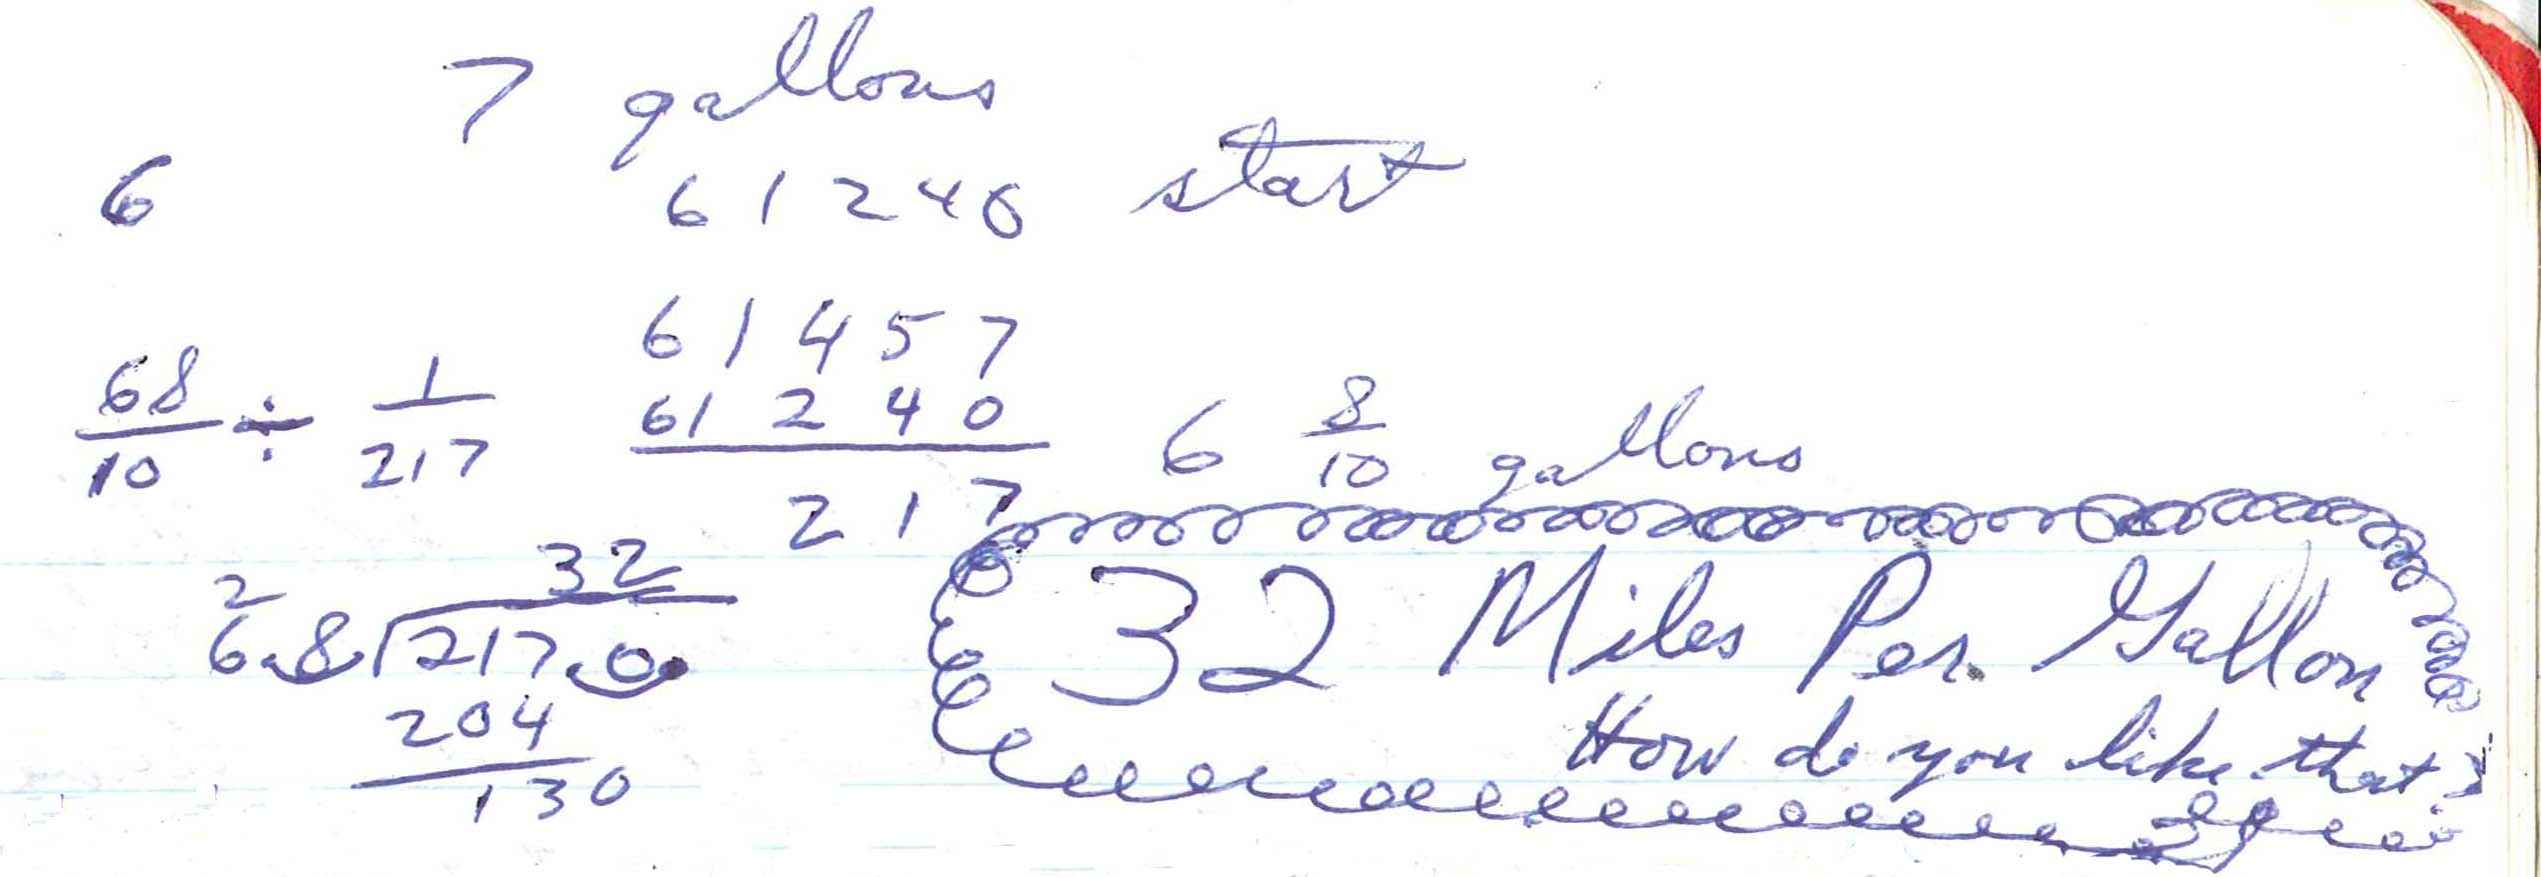 7 gallons
6 61240 start
61457
68/10 ÷ 1/217 61240 6 8/10 gallons
217
32
2
6.8 217.0.
32 Miles Per. Gallon
204
How do you like that?
130